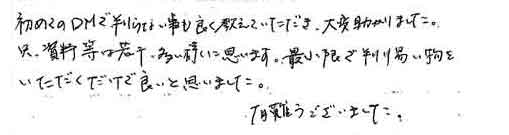 初めてのDMで判らない事も良く教えていただき、大変助かりました。
只、資料等は若干、多い様に思います。最小限で判り易い物を
いただくだけで良いと思いました。
有難うございました。